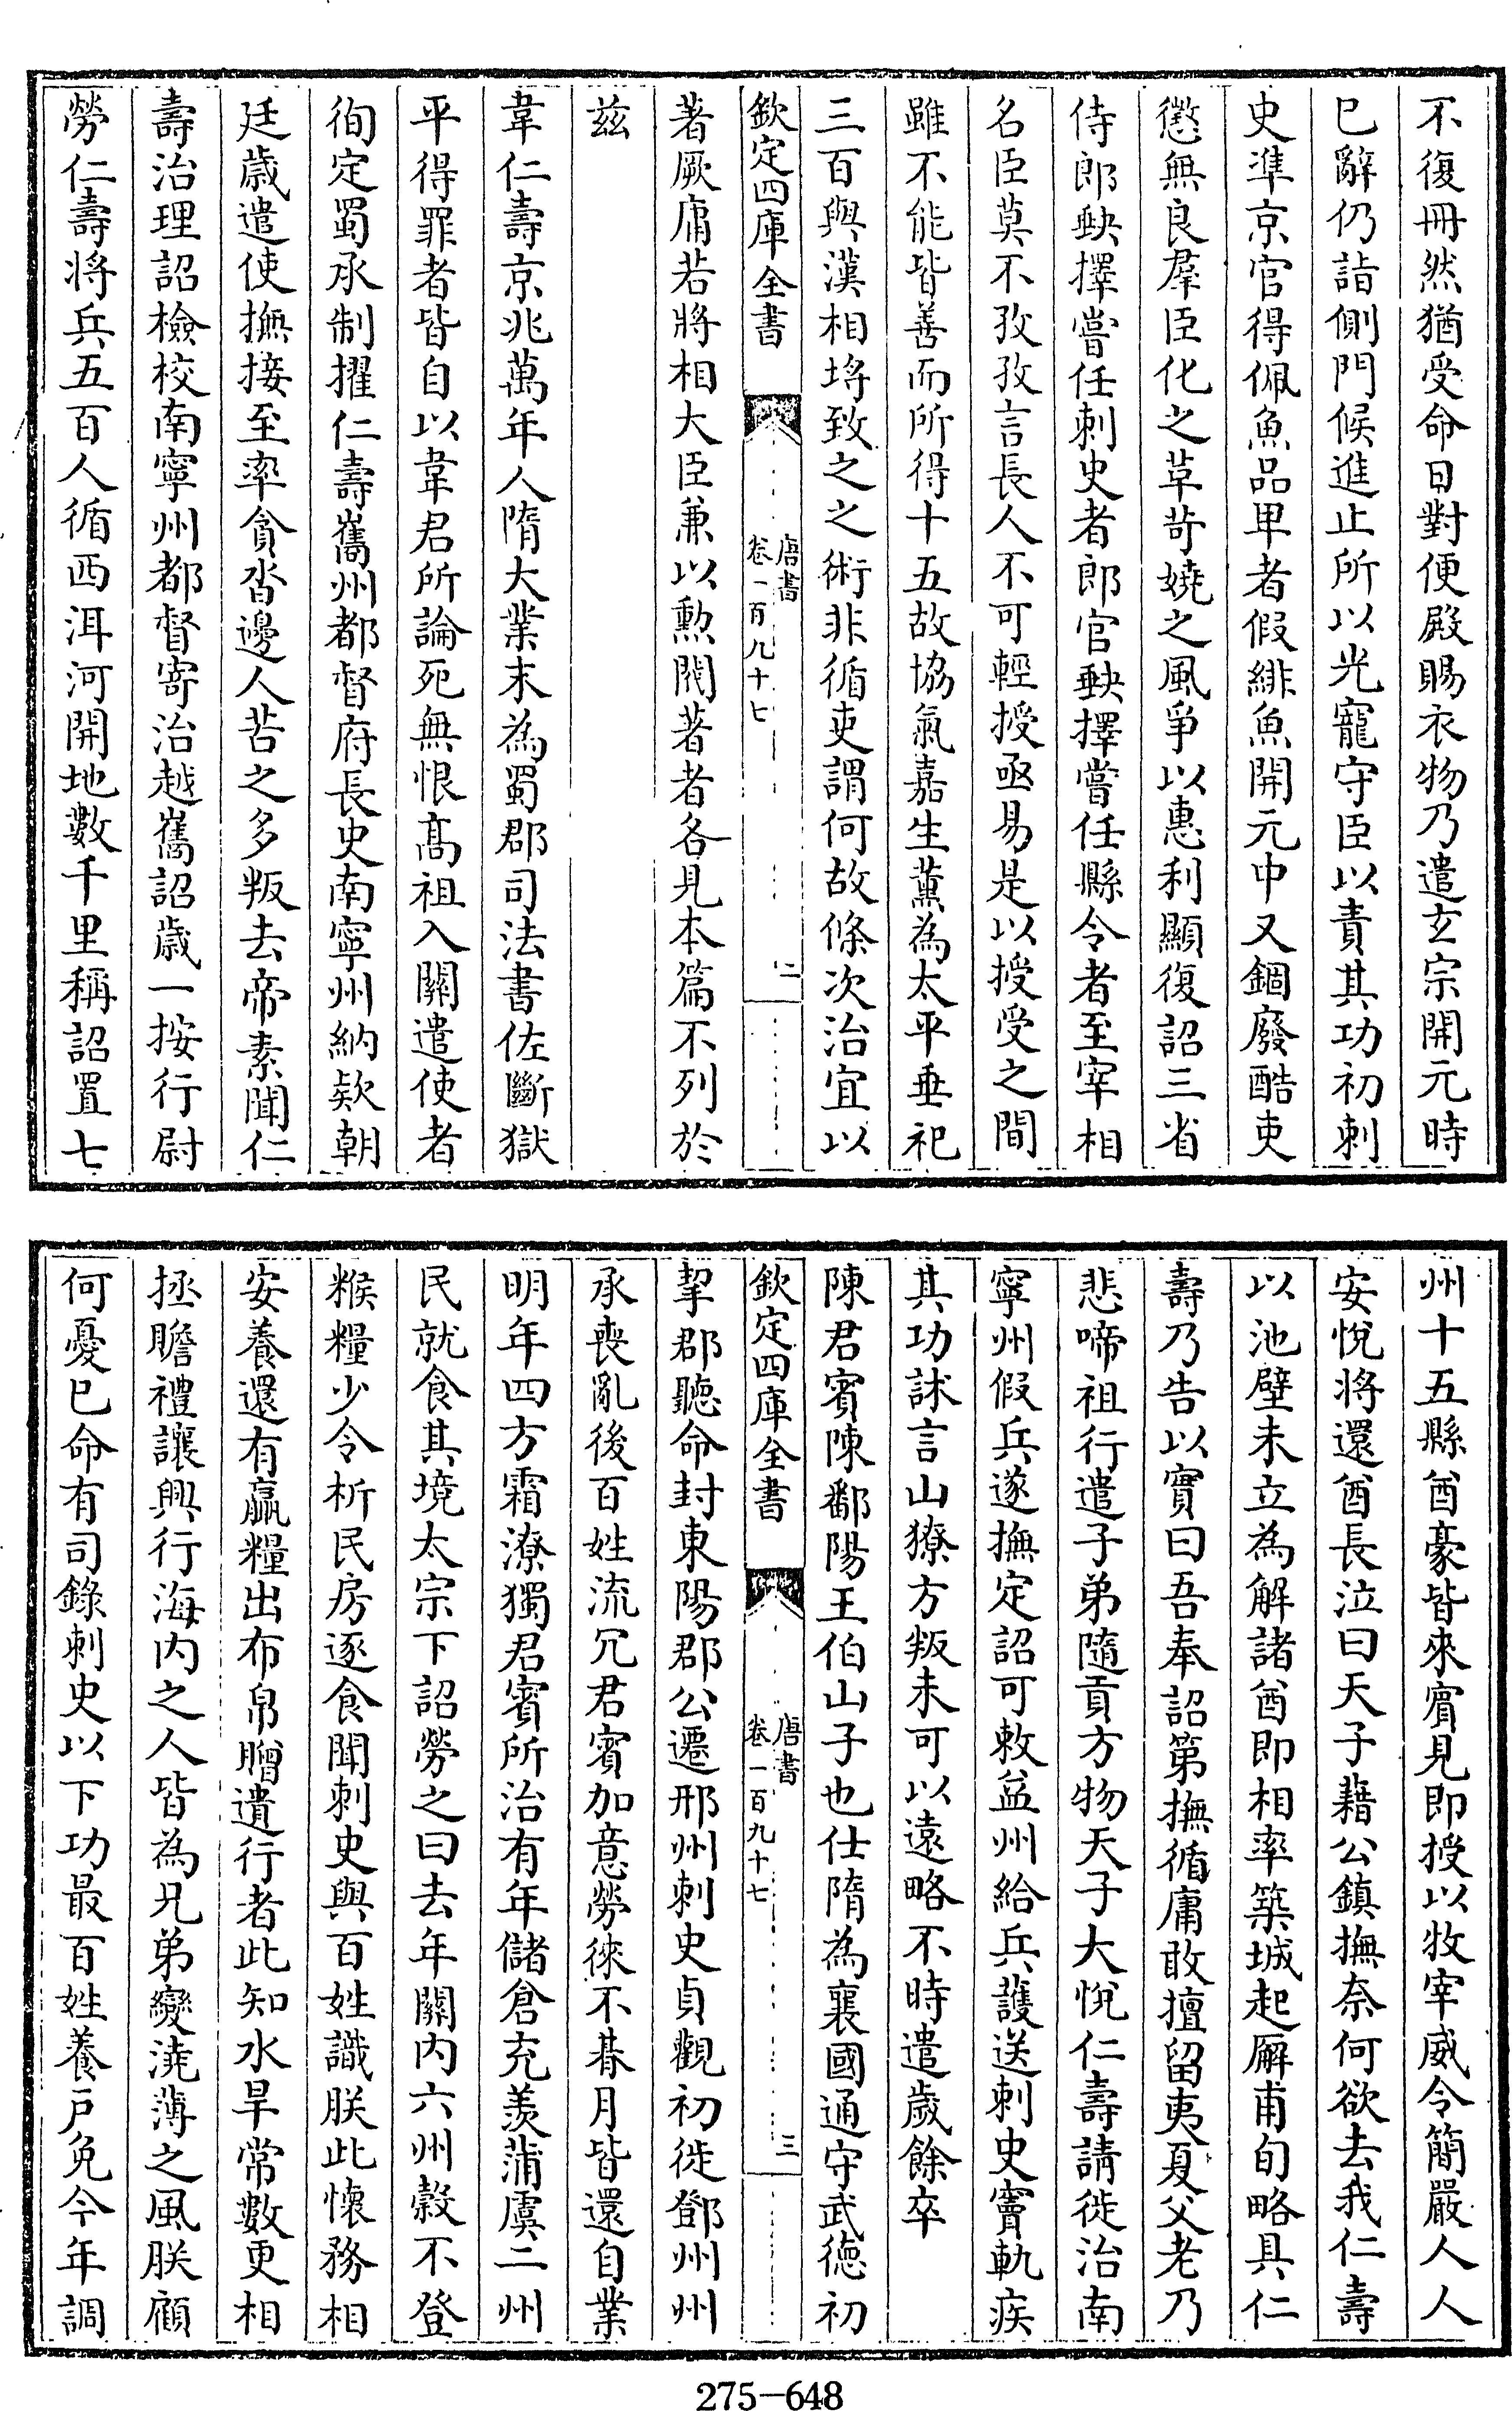 不復冊然猶受命日對便殿賜衣物乃遣玄宗開元時
已辭仍詣側門候進止所以光寵守臣以責其功初刺
史準京官得佩魚品卑者假緋魚開元中又錮廢酷吏
懲無良羣臣化之革苛嬈之風爭以惠利顯復詔三省
侍郎缺擇嘗任刺史者郎官缺擇嘗任縣令者至宰相
名臣莫不孜孜言長人不可輕授亟易是以授受之間
雖不能皆善而所得十五故協氣嘉生薰為太平垂祀
三百與漢相埒致之之術非循吏謂何故條次治宜以
欽定四庫全書
唐書
卷一百九十七
二
著厥庸若將相大臣兼以勲閥著者各見本篇不列於
兹
韋仁壽京兆萬年人隋大業末為蜀郡司法書佐斷獄
平得罪者皆自以韋君所論死無恨髙祖入關遣使者
徇定蜀承制擢仁壽巂州都督府長史南寧州納欵朝
廷歲遣使撫接至率貪沓邊人苦之多叛去帝素聞仁
壽治理詔檢校南寧州都督寄治越巂詔歲一按行尉
勞仁壽將兵五百人循西洱河開地數千里稱詔置七
州十五縣酋豪皆來賓見即授以牧宰威令簡嚴人人
安悅將還酋長泣曰天子藉公鎮撫奈何欲去我仁壽
以池壁未立為解諸酋即相率築城起廨甫旬略具仁
壽乃告以實曰吾奉詔第撫循庸敢擅留夷夏父老乃
悲啼祖行遣子弟隨貢方物天子大悅仁壽請徙治南
寧州假兵遂撫定詔可敕益州給兵護送刺史竇軌疾
其功訹言山獠方叛未可以遠略不時遣歲餘卒
陳君賓陳鄱陽王伯山子也仕隋為襄國通守武德初
欽定四庫全書
唐書
卷一百九十七
三
挈郡聽命封東陽郡公遷邢州刺史貞觀初徙鄧州州
承喪亂後百姓流冗君賓加意勞徠不朞月皆還自業
明年四方霜潦獨君賓所治有年儲倉充羨蒲虞二州
民就食其境太宗下詔勞之曰去年關內六州穀不登
糇糧少令析民房逐食聞刺史與百姓識朕此懷務相
安養還有贏糧出布帛贈遺行者此知水旱常數更相
拯贍禮讓興行海內之人皆為兄弟變澆薄之風朕顧
何憂已命有司錄刺史以下功最百姓養戶免今年調
275-648